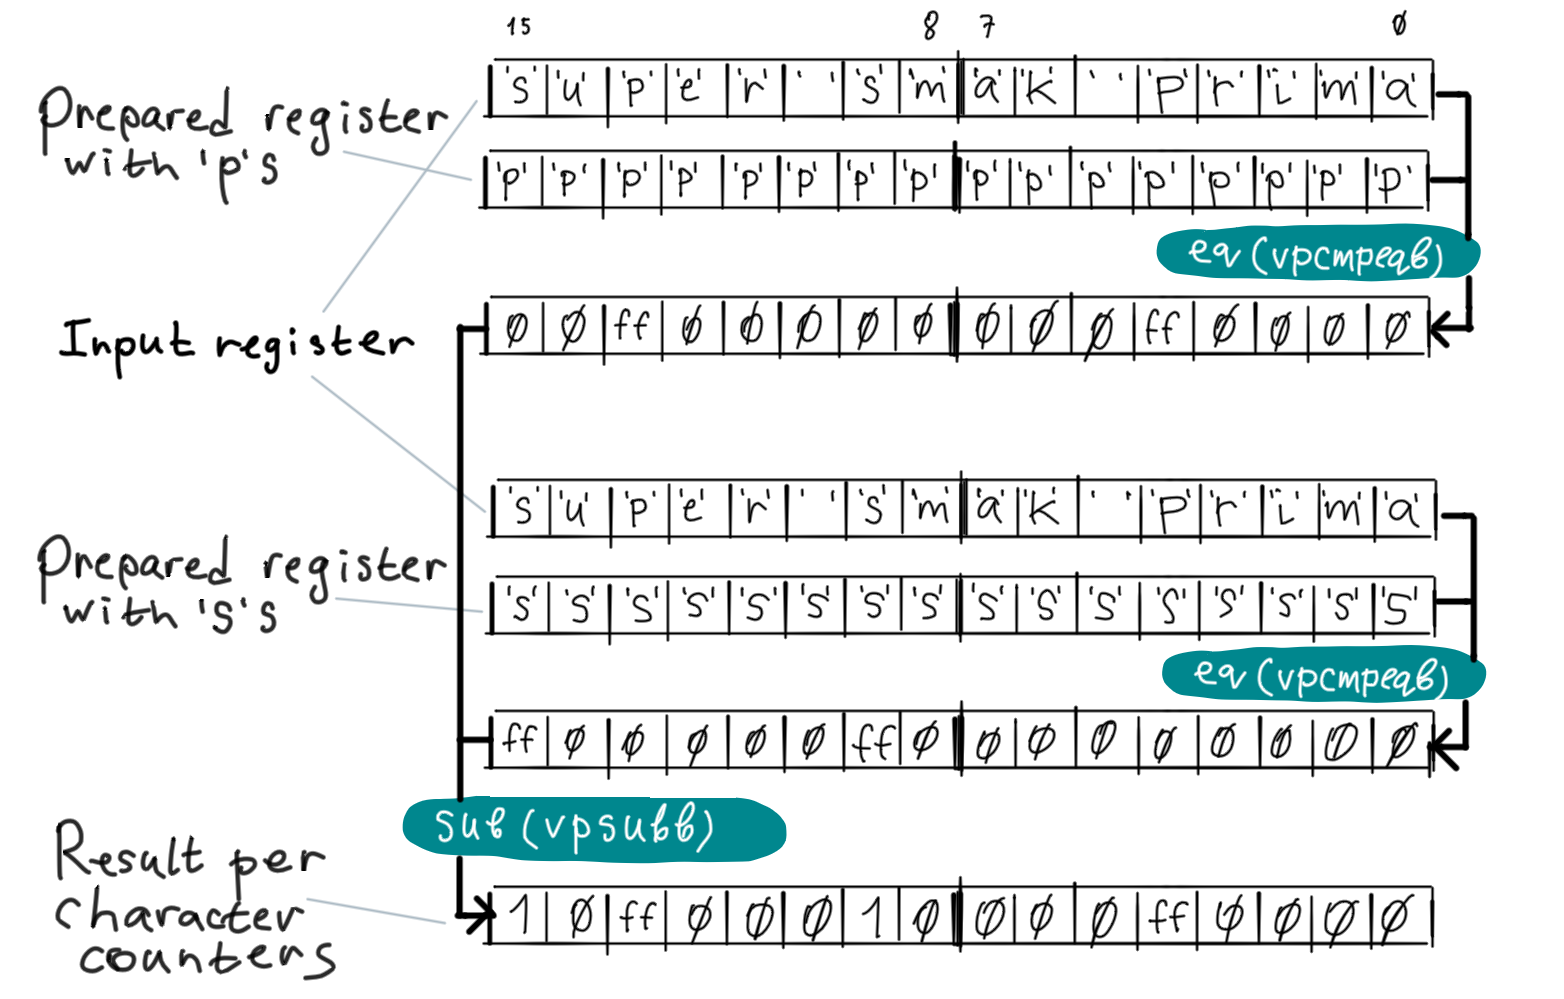 15 8 7 0
's' 'u' 'p' 'e' 'r' ' ' 's' 'm' 'a' 'k' ' ' 'p' 'r' 'i' 'm' 'a'
Prepared register
with 'p's
'p' 'p' 'p' 'p' 'p' 'p' 'p' 'p' 'p' 'p' 'p' 'p' 'p' 'p' 'p' 'p'
eq (vpcmpeqb)
Input register
0 0 ff 0 0 0 0 0 0 0 0 ff 0 0 0 0
's' 'u' 'p' 'e' 'r' ' ' 's' 'm' 'a' 'k' ' ' 'p' 'r' 'i' 'm' 'a'
Prepared register
with 's's
's' 's' 's' 's' 's' 's' 's' 's' 's' 's' 's' 's' 's' 's' 's' 's'
eq (vpcmpeqb)
ff 0 0 0 0 0 ff 0 0 0 0 0 0 0 0 0
sub (vpsubb)
Result per
character
counters
1 0 ff 0 0 0 1 0 0 0 0 ff 0 0 0 0